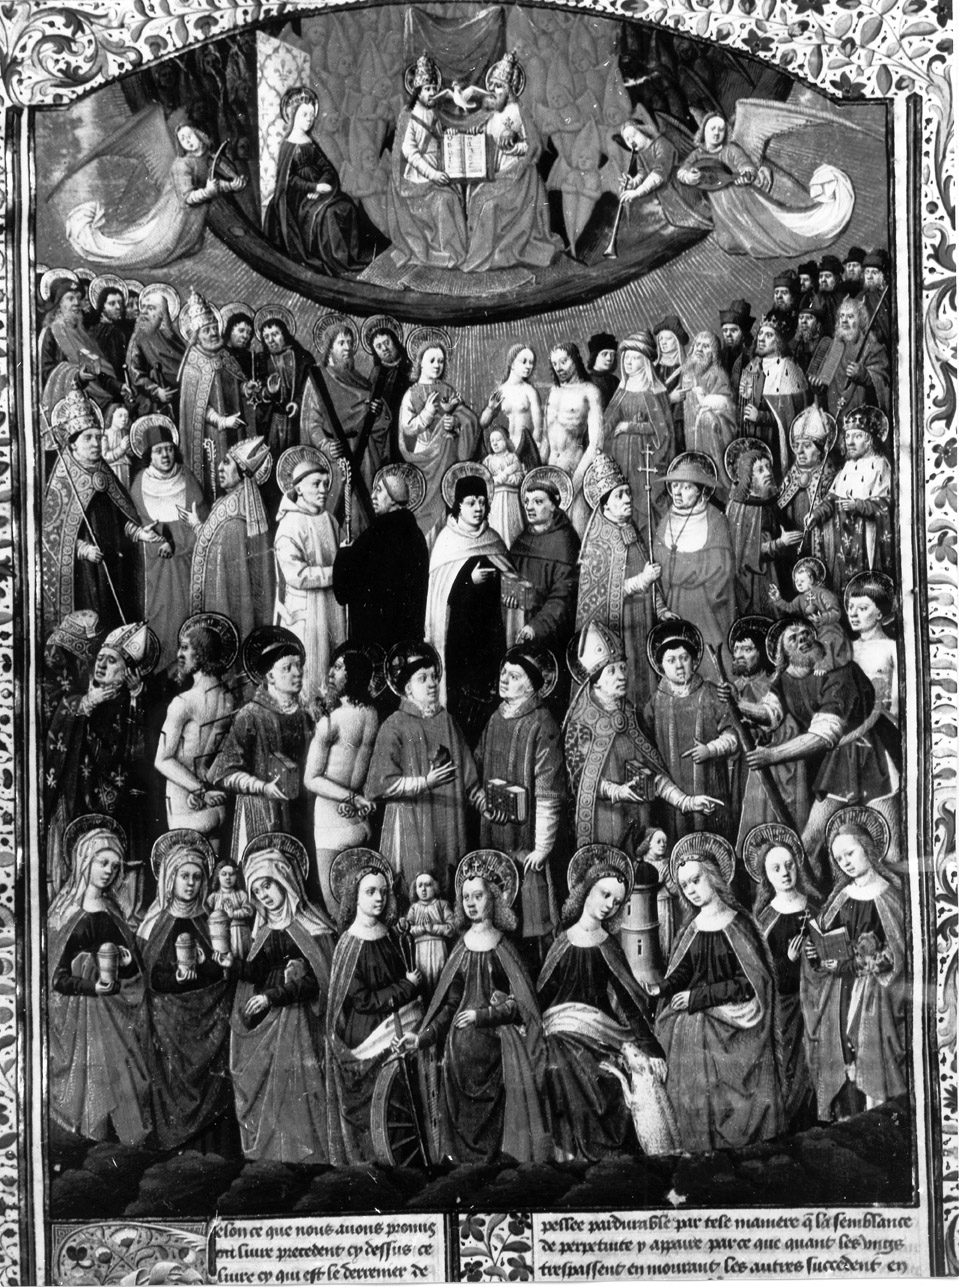 elon ce que nous auons promis
ou liure precedent cy dessus ce
liure cy qui est le derrenier de
pellee pardurable par tele maniere q̄ la semblance
de perpetuite y appaire par ce que quant les vnes
trespassent en mourant les autres succedent en